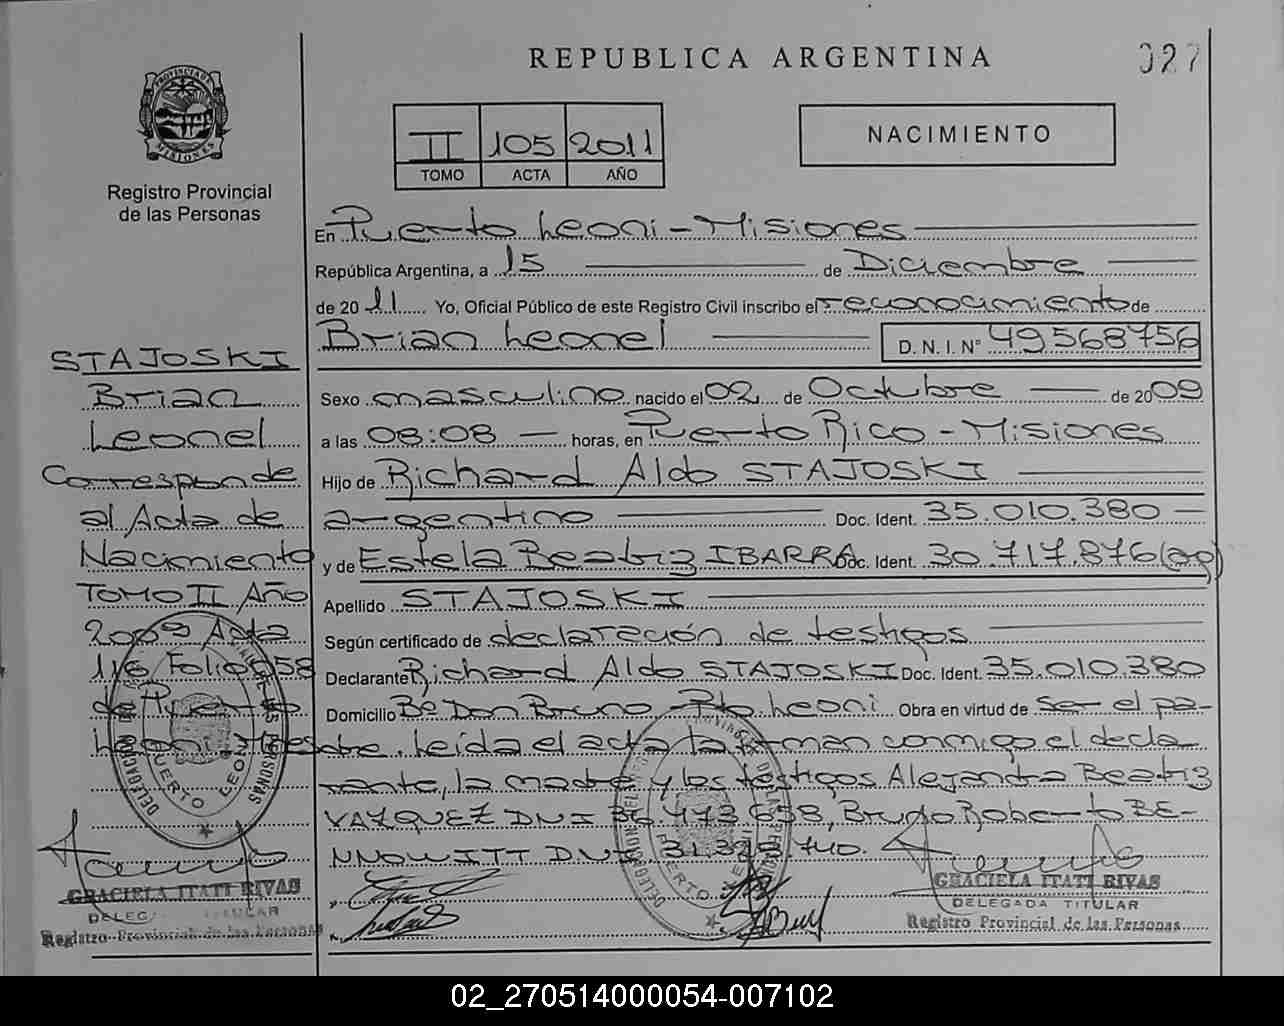 REPUBLICA ARGENTINA
027
PROVINCIA DE MISIONES
Registro Provincial
de las Personas
II 105 2011
TOMO ACTA AÑO
NACIMIENTO
En Puerto Leoni - Misiones
República Argentina, a 15 de Diciembre
de 2011 Yo, Oficial Público de este Registro Civil inscribo el reconocimiento de
Brian Leonel D.N.I.N° 49568756
Sexo masculino nacido el 02 de Octubre de 2009
a las 08:08 horas, en Puerto Rico - Misiones
Hijo de Richard Aldo STAJOSKI
argentino Doc. Ident. 35.010.380
y de Estela Beatriz IBARRA Doc. Ident. 30.717.876 (ag)
Apellido STAJOSKI
Según certificado de declaración de testigos
Declarante Richard Aldo STAJOSKI Doc. Ident. 35.010.380
Domicilio B° Don Bruno - Pto. Leoni Obra en virtud de ser el pa-
dre. Leída el acta la firman conmigo el decla
rante, la madre y los testigos Alejandra Beatriz
VAZQUEZ DNI 36.473.658, Bruno Roberto BE-
NNOWITT DNI 31.740.
STAJOSKI
Brian
Leonel
Corresponde
al Acta de
Nacimiento
TOMO II Año
2009 Acta
116 Folio 058
de Puerto
Leoni
DELEGACIÓN PUERTO LEONI
GRACIELA ITATI RIVAS
DELEGADA TITULAR
Registro Provincial de las Personas
GRACIELA ITATI RIVAS
DELEGADA TITULAR
Registro Provincial de las Personas
02_270514000054-007102